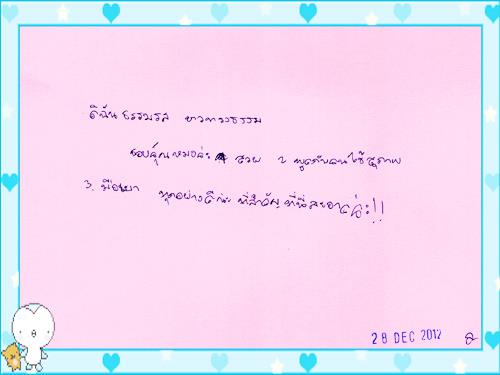 ดิฉัน ธรรมรส
ขอบคุณหมอค่ะ สวย 2 พูดกับคนไข้สุภาพ
3. มือเบา ทุกอย่างดีค่ะ ที่สำคัญ ที่นี่สะอาดค่ะ!!
28 DEC 2012